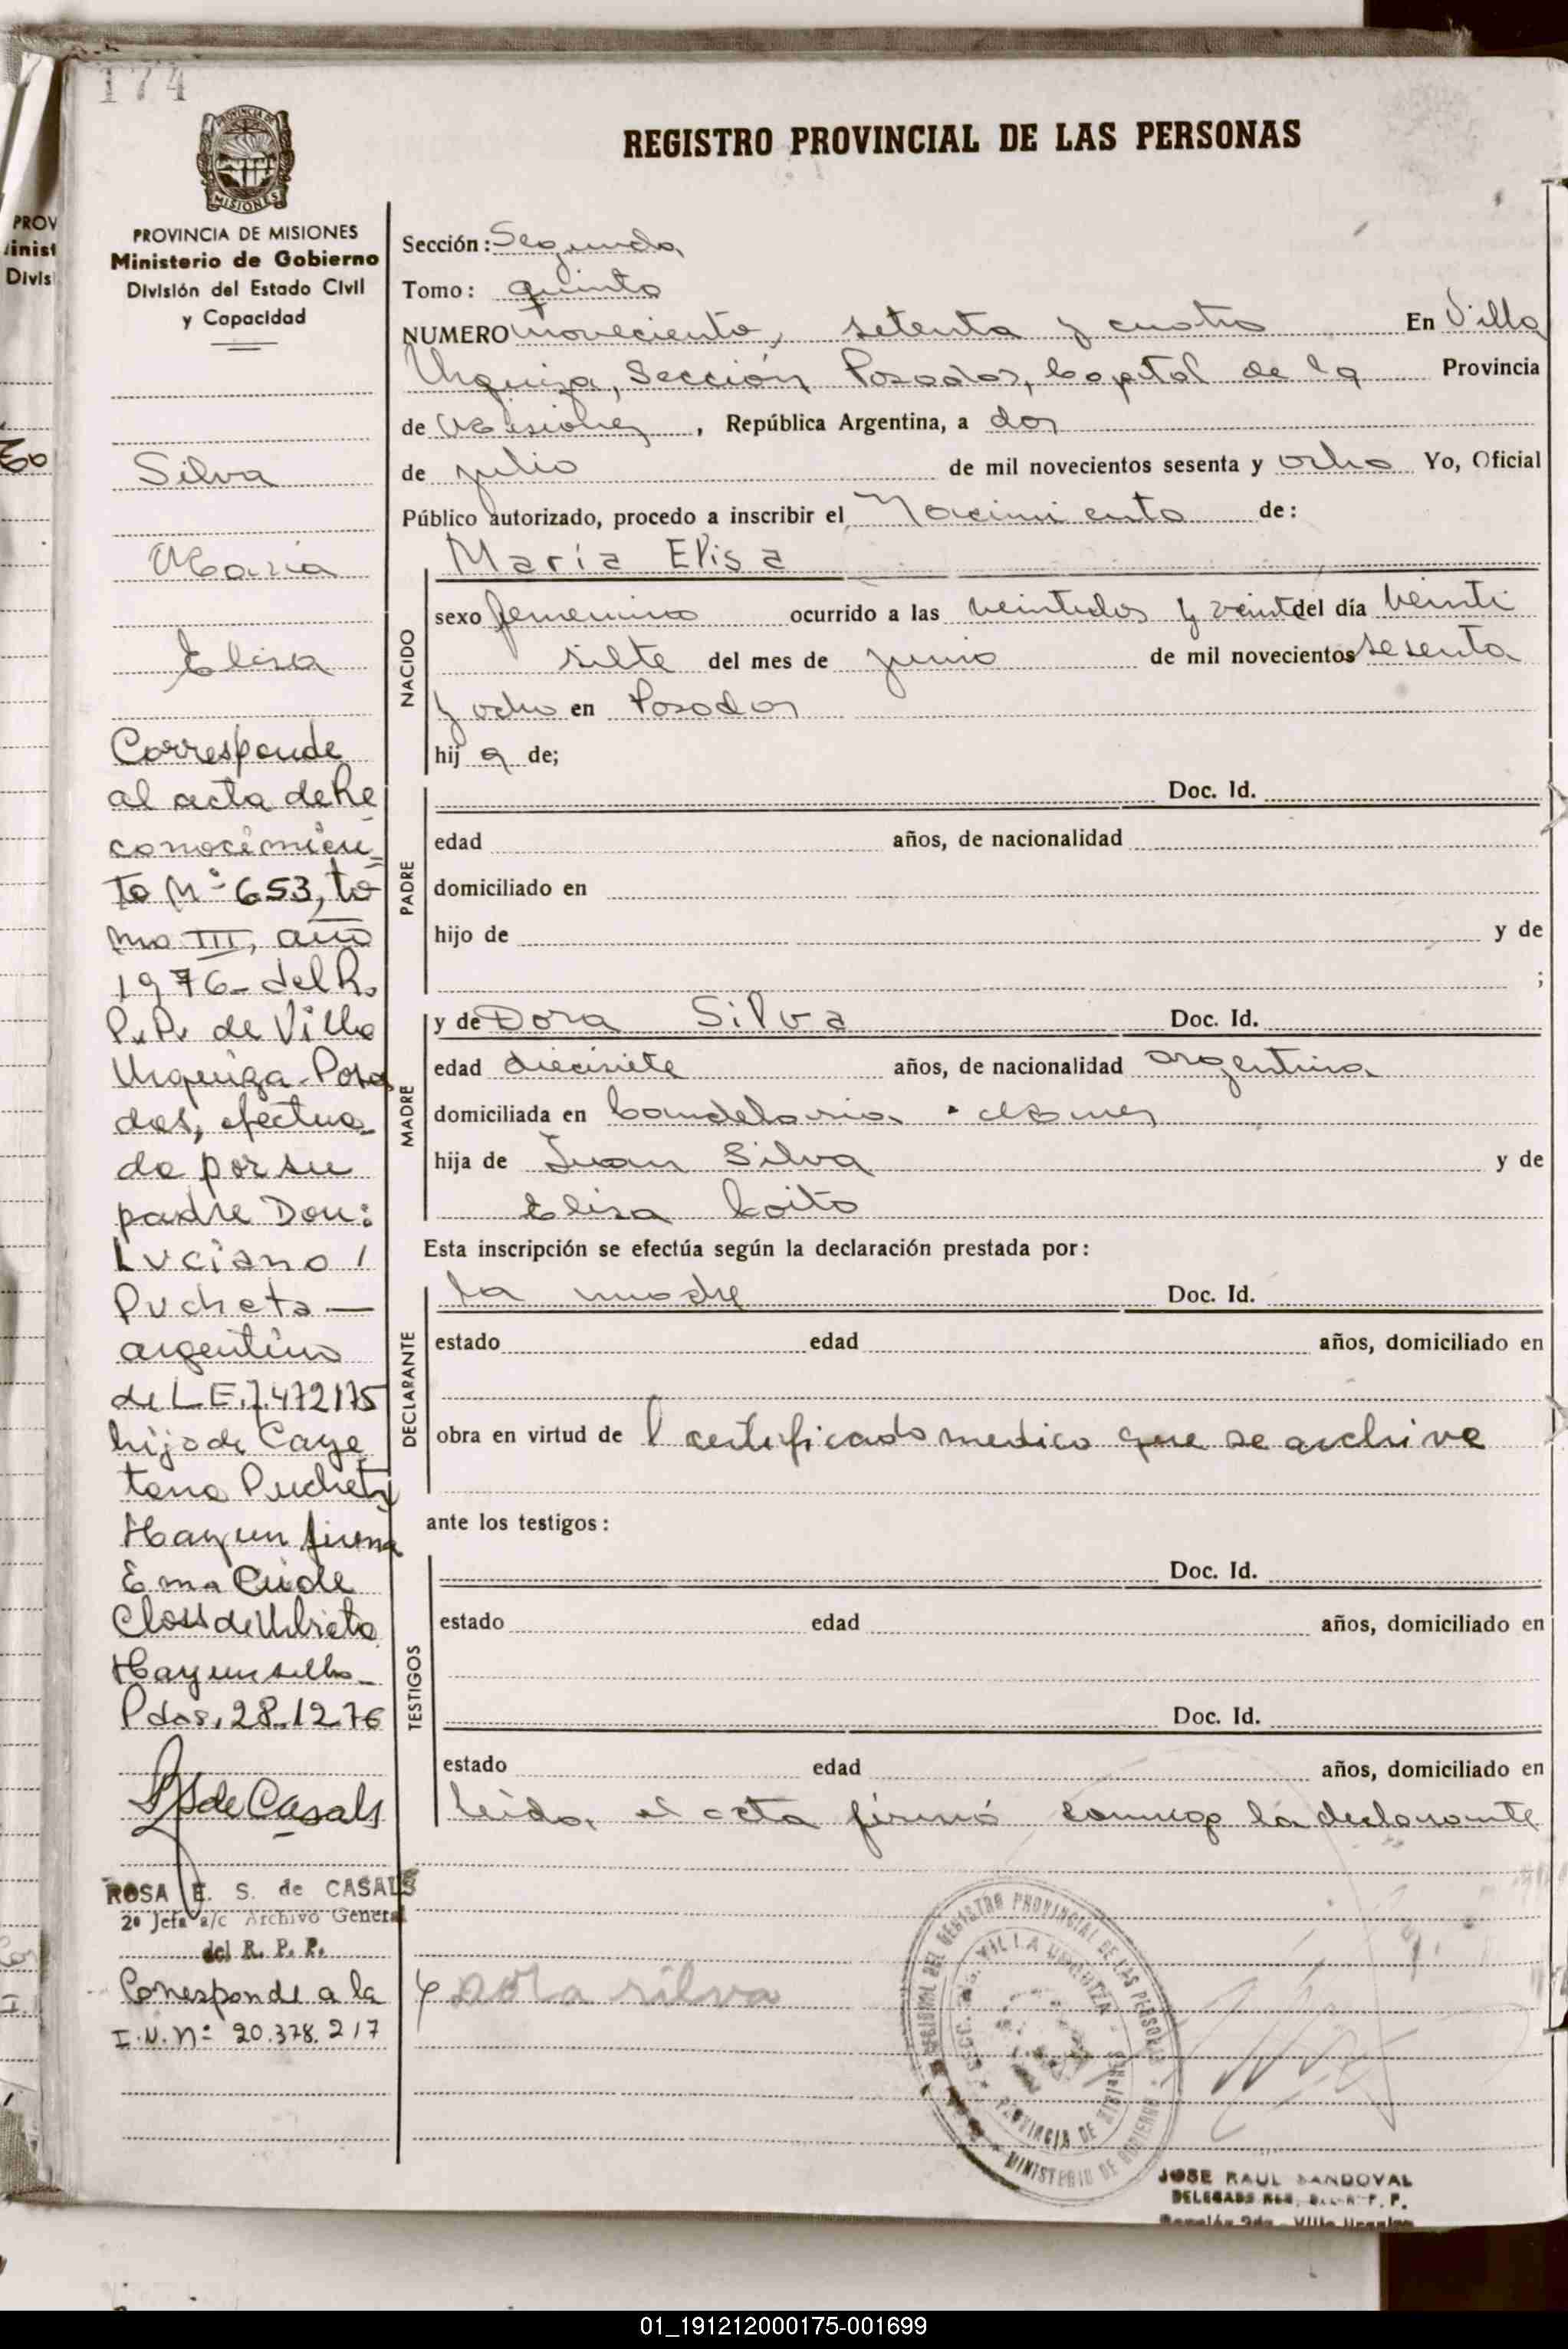 174
PROVINCIA DE MISIONES
MISIONES
REGISTRO PROVINCIAL DE LAS PERSONAS
PROVINCIA DE MISIONES
Ministerio de Gobierno
División del Estado Civil
y Capacidad
Silva
María
Elisa
Corresponde
al acta de Re
conocimien=
to Nº 653, to
mo III, año
1976- del R.
P.P. de Villa
Urquiza-Posa
das, efectua
da por su
padre Don:
Luciano /
Pucheta —
argentino
de L.E. 7.472175
hijo de Caye
tana Pucheta
Hay un firma
Ema
Closs de Urbieta
Hay un sello-
Pdas, 28-12-76
de Casals
ROSA E. S. de CASALS
2ª Jefa a/c Archivo General
del R. P. P.
Corresponde a la
I.N. nº 20.378.217
Sección: Segunda
Tomo: quinto
NUMERO noveciento, setenta y cuatro En Villa
Urquiza, Sección Posadas, Capital de la Provincia
de Misiones, República Argentina, a dos
de julio de mil novecientos sesenta y ocho Yo, Oficial
Público autorizado, procedo a inscribir el Nacimiento de:
María Elisa
NACIDO
sexo femenino ocurrido a las veintidos y veint del día veinti
siete del mes de junio de mil novecientos sesenta
y ocho en Posadas
hij a de;
PADRE
Doc. Id.
edad años, de nacionalidad
domiciliado en
hijo de y de
;
MADRE
y de Dora Silva Doc. Id.
edad diecisiete años, de nacionalidad argentina
domiciliada en Candelaria
hija de Juan Silva y de
Elisa Coito
Esta inscripción se efectúa según la declaración prestada por:
DECLARANTE
la madre Doc. Id.
estado edad años, domiciliado en
obra en virtud de l certificado medico que se archive
ante los testigos:
TESTIGOS
Doc. Id.
estado edad años, domiciliado en
Doc. Id.
estado edad años, domiciliado en
leida, el acta firmó conmigo la declarante
dora silva
REGIONAL DEL REGISTRO PROVINCIAL DE LAS PERSONAS
SECC. 2da. VILLA URQUIZA
PROVINCIA DE MISIONES
MINISTERIO DE GOBIERNO
JOSE RAUL SANDOVAL
DELEGADO R. P. P.
Villa Urquiza
01_191212000175-001699